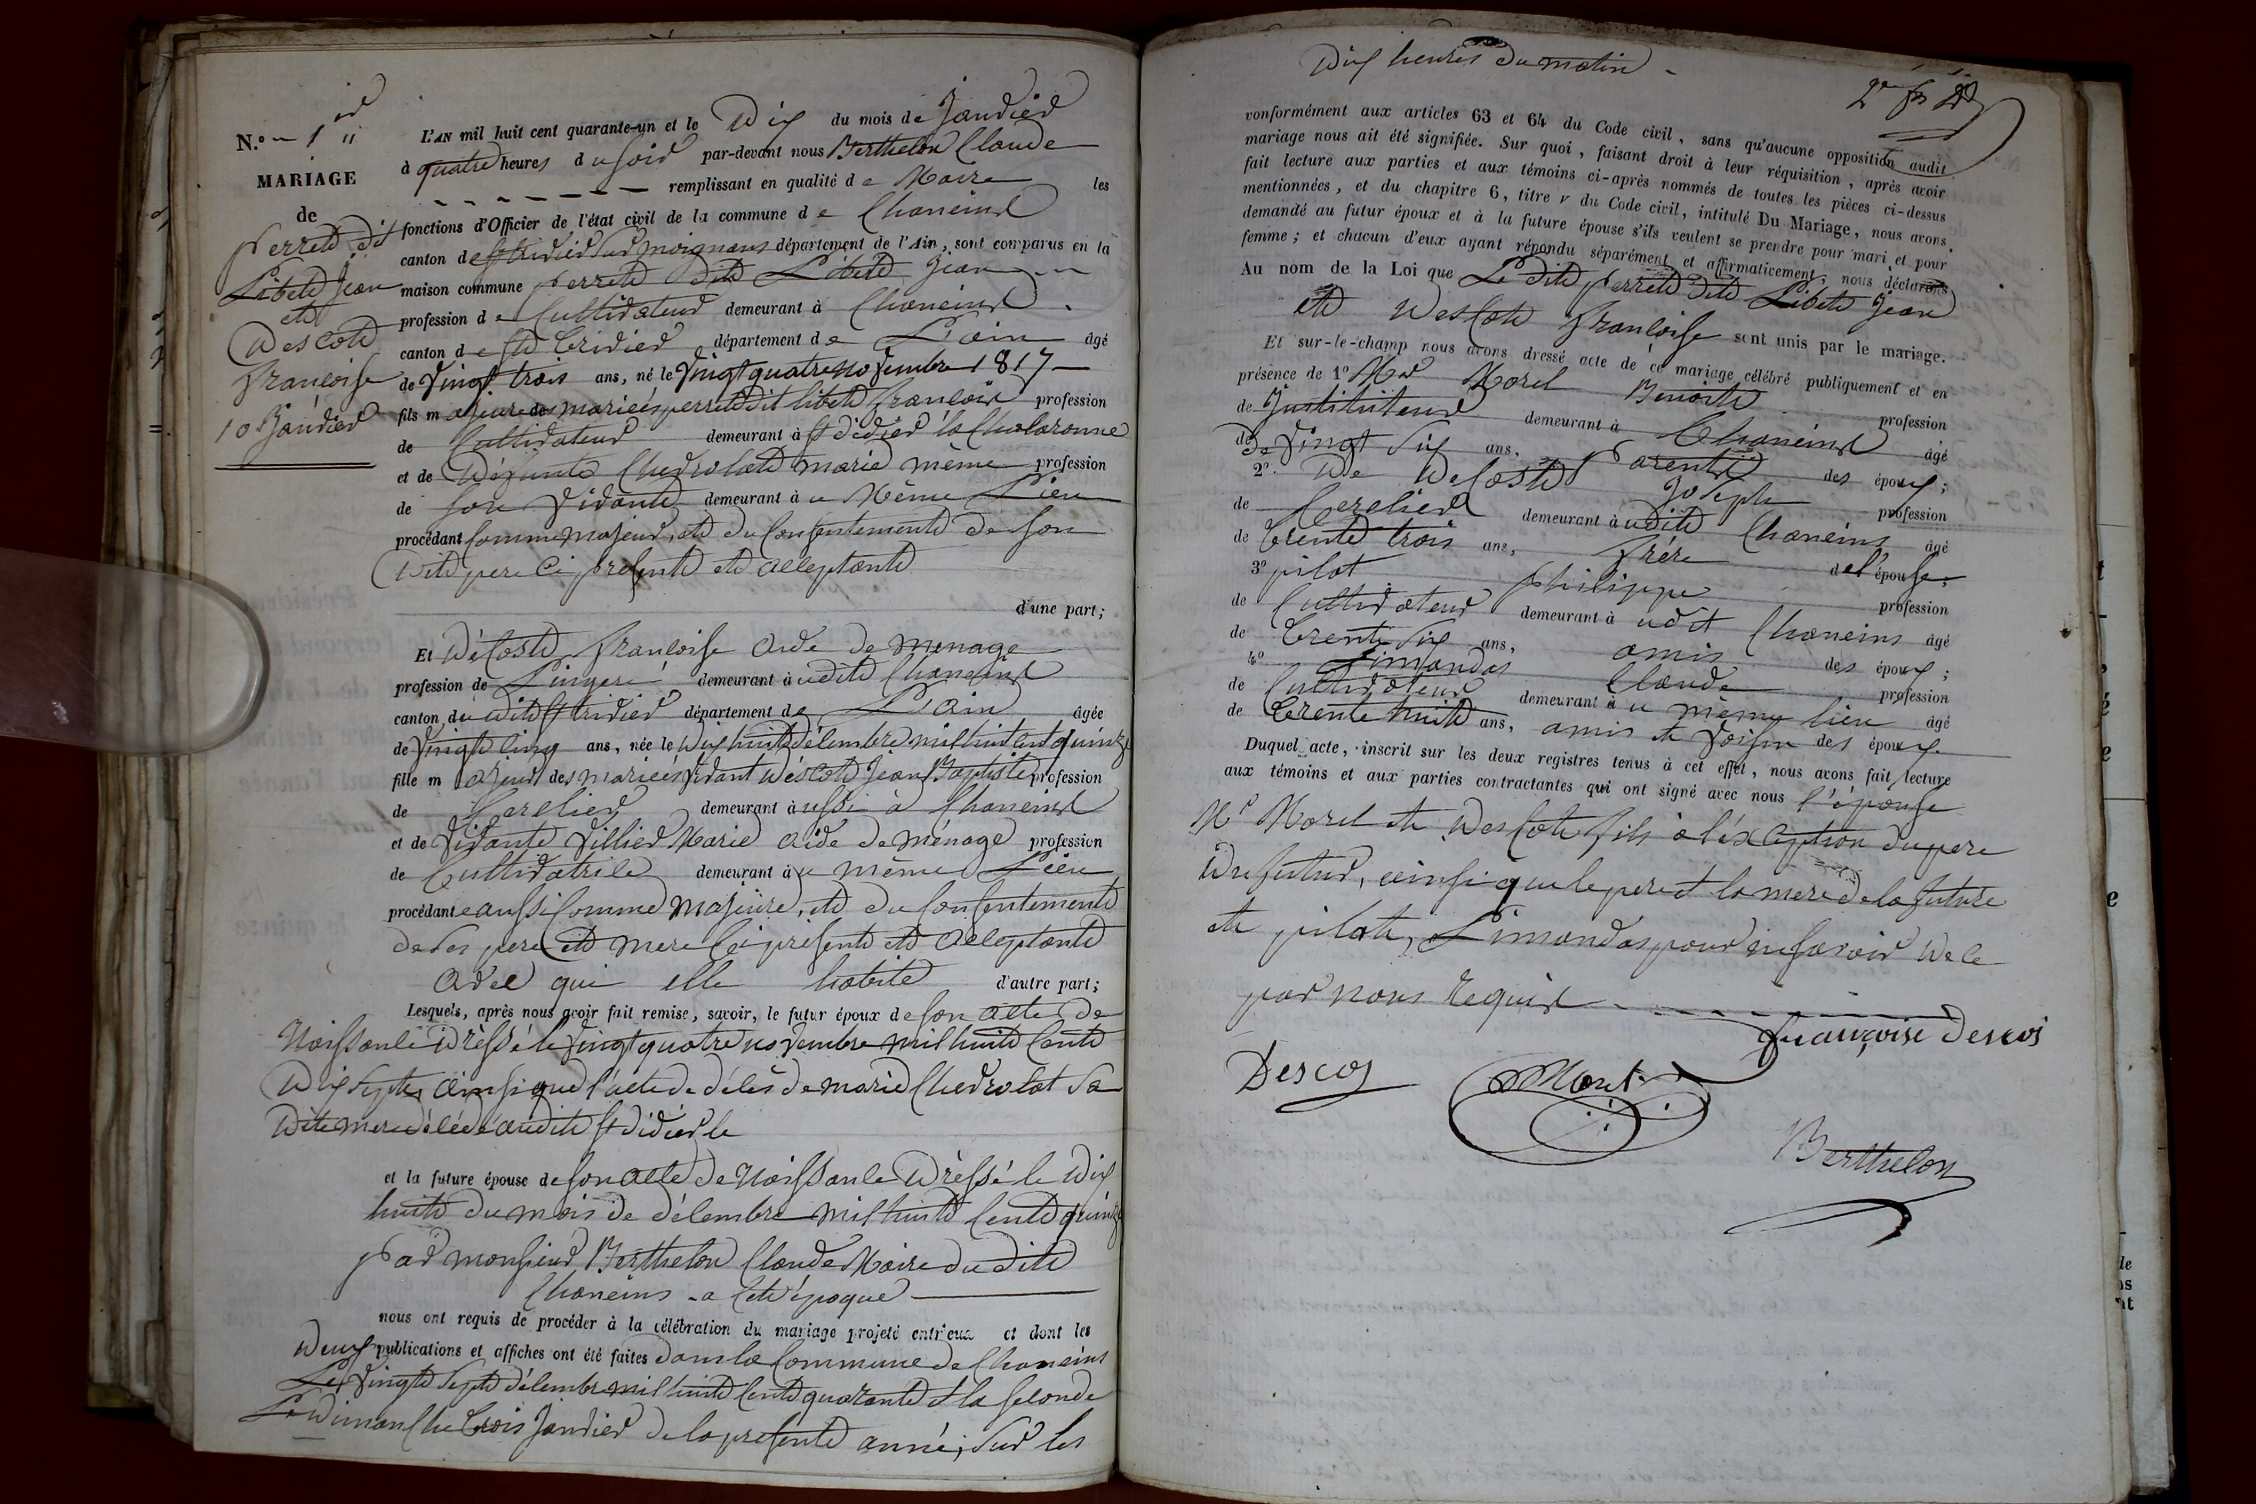 N.o 1er
MARIAGE
de
Perret dit
Libet Jean
et
Descote
Françoise
10 Janvier
L'AN mil huit cent quarante-un et le Dix du mois de Janvier
à quatre heures du soir par-devant nous Berthelon Claude
remplissant en qualité de Maire les
fonctions d'Officier de l'état civil de la commune de Chaneins
canton de St trivier Sur moignans département de l'Ain, sont comparus en la
maison commune Perret dit Libet Jean
profession de Cultivateur demeurant à Chaneins
canton de St Trivier département de L'ain âgé
de Vingt trois ans, né le Vingt quatre novembre 1817
fils majeur des mariés perret dit libet françois profession
de Cultivateur demeurant à St didier la Chalaronne
et de Défunte Chevrolat marie même profession
de Son Vivante demeurant à u Même Lieu
procédant Comme majeur, et du Consentement de Son
dit pere Ci présent et acceptant
d'une part;
Et Décoste françoise avde de menage
profession de Lingere demeurant à udit Chaneins
canton du dit St trivier département de L'ain âgée
de Vingt cinq ans, née le Dix huit décembre mil huit cent quinze
fille majeur des mariés Vivant Descote Jean Baptiste profession
de Cerclier demeurant à ussi à Chaneins
et de Vivante Villier Marie aide de ménage profession
de Cultivatrice demeurant à u même Lieu
procédante aussi Comme majeure, et du Consentement
de Ses pere et mere Ci présent et acceptant
avec qui elle habite d'autre part;
Lesquels, après nous avoir fait remise, savoir, le futur époux de Son acte de
Naissance Dressé le Vingt quatre novembre mil huit Cent
Dix Sept, ainsi que l'acte de décès de marie Chevrolat Sa
dite mere décédé audit St didier le
et la future épouse de Son acte de Naissance Dressé le Dix
huit du mois de décembre mil huit Cent quinze
par monsieur Berthelon Claude Maire du dit
Chaneins a Cet époque
nous ont requis de procéder à la célébration du mariage projeté entr'eux et dont les
Deux publications et affiches ont été faites dans la Commune de Chaneins
Le Vingt Sept décembre mil huit Cent quarante & la Seconde
Le Dimanche trois Janvier de la présente année, Sur les
Dix heures du matin
2e
conformément aux articles 63 et 64 du Code civil, sans qu'aucune opposition audit
mariage nous ait été signifiée. Sur quoi, faisant droit à leur réquisition, après avoir
fait lecture aux parties et aux témoins ci-après nommés de toutes les pièces ci-dessus
mentionnées, et du chapitre 6, titre v du Code civil, intitulé Du Mariage, nous avons
demandé au futur époux et à la future épouse s'ils veulent se prendre pour mari et pour
femme; et chacun d'eux ayant répondu séparément et affirmativement, nous déclarons
Au nom de la Loi que Le dit perret dit Libet Jean
et Descote françoise sont unis par le mariage.
Et sur-le-champ nous avons dressé acte de ce mariage célébré publiquement et en
présence de 1o Mr Morel Benoite profession
de Instituteur demeurant à Chaneins âgé
de Vingt Six ans, Parente des époux;
2o De Décoste Joseph profession
de Cerclier demeurant à udit Chaneins âgé
de trente trois ans, frére de l'épouse;
3o pilot philippe profession
de Cultivateur demeurant à udit Chaneins âgé
de trente Six ans, amis des époux;
4o Limandas Claude profession
de Cultivateur demeurant à u memme lieu âgé
de trente huit ans, amis et Voisin des époux.
Duquel acte, inscrit sur les deux registres tenus à cet effet, nous avons fait lecture
aux témoins et aux parties contractantes qui ont signé avec nous l'épouse
Mr Morel et Descote fils à l'exception du pere
Du futur, ainsi que le pere et la mere de la future
et pilot, Limandas pour ne Savoir De le
par nous requis
Françoise Descos
Descos
Morel
Berthelon